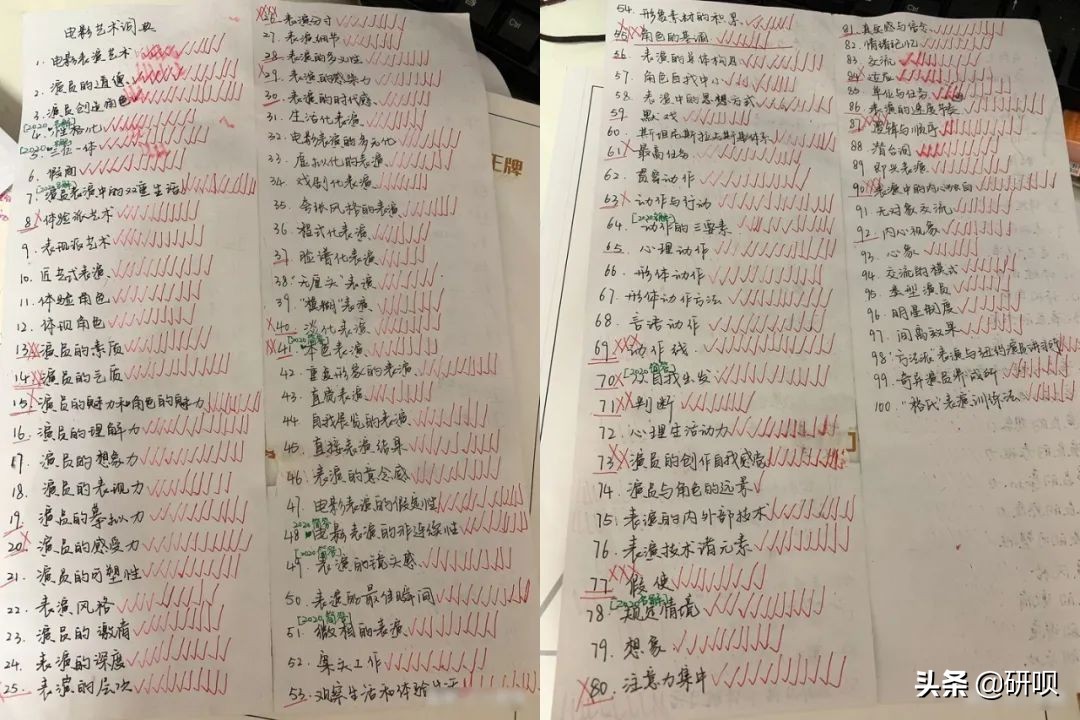 电影艺术词典
1. 电影表演艺术
2. 演员的道德
3. 演员创造角色
[2020名解]
4. 性格化
[2020名解]
5. 三位一体
6. 假面
7. 演员表演中的双重生活
8. 体验派艺术
9. 表现派艺术
10. 匠艺式表演
11. 体验角色
12. 体现角色
13. 演员的素质
14. 演员的气质
15. 演员的魅力和角色的魅力
16. 演员的理解力
17. 演员的想象力
18. 演员的表现力
19. 演员的摹拟力
20. 演员的感受力
21. 演员的可塑性
22. 表演风格
23. 演员的激情
24. 表演的深度
25. 表演的层次
26. 表演分寸
27. 表演细节
28. 表演的多义性
29. 表演的感染力
30. 表演的时代感
31. 生活化表演
32. 电影表演的多元化
33. 虚拟化的表演
34. 戏剧化表演
35. 夸张风格的表演
36. 程式化表演
37. 脸谱化表演
38. "无厘头"表演
39. "模糊"表演
40. 淡化表演
41. 本色表演
[2020简答]
42. 重直形象的表演
43. 直觉表演
44. 自我展览的表演
45. 直接表演结果
46. 表演的意念感
47. 电影表演的假定性
2020简答
48. 电影表演的非连续性
[2020简答]
49. 表演的镜头感
50. 表演的最佳瞬间
[2020简答]
51. 微相的表演
52. 案头工作
53. 观察生活和体验生活
54. 形象素材的积累
55. 角色的基调
56. 表演的总体构思
57. 角色自我中心
58. 表演中的思想方式
59. 默戏
60. 斯坦尼斯拉夫斯基体系
61. 最高任务
62. 贯穿动作
63. 动作与行动
[2020简答]
64. 动作的三要素
65. 心理动作
66. 形体动作
67. 形体动作方法
68. 言语动作
69. 动作线
[2020简答]
70. 从自我出发
71. 判断
72. 心理生活动力
73. 演员的创作自我感觉
74. 演员与角色的远景
75. 表演的内外部技术
76. 表演技术诸元素
77. 假使
[2020名解]
78. 规定情境
79. 想象
80. 注意力集中
81. 真实感与信念
82. 情绪记忆
83. 交流
84. 适应
85. 单位与任务
86. 表演的速度节奏
87. 逻辑与顺序
88. 潜台词
89. 即兴表演
90. 表演中的内心独白
91. 无对象交流
92. 内心视象
93. 心象
94. 交流的模式
95. 类型演员
96. 明星制度
97. 间离效果
98. 方法派表演与纽约演员讲习所
99. 奇异演员养成所
100. "格氏"表演训练法
王牌
头条 @研呗